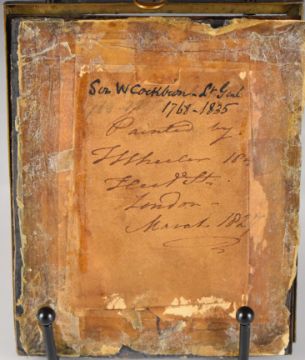 Sir W Cockburn - Lt Genl
1768-1835
Painted by
T Wheeler 18
Fleet St.
London -
March 182